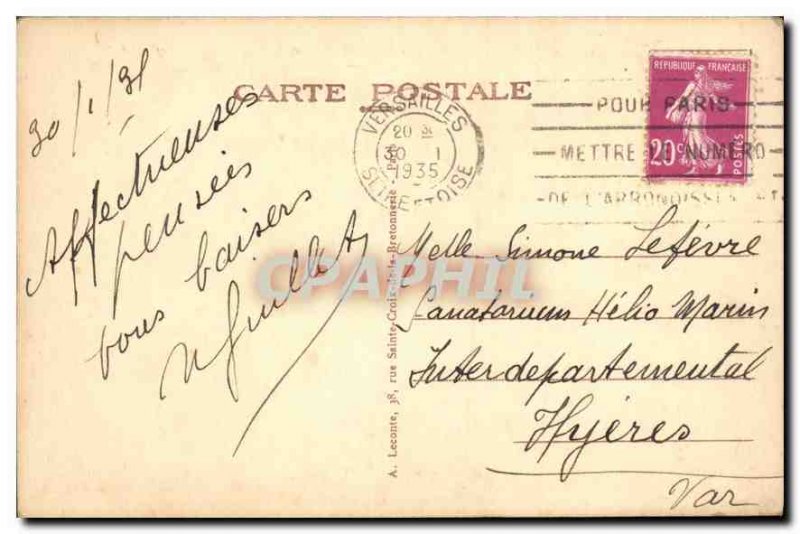 CARTE POSTALE
30/1/35
Affectueuses
pensées
bons baisers
VERSAILLES
20 H
30 I
1935
SEINE ET OISE
POUR PARIS
METTRE LE NUMERO
DE L'ARRONDISSEMENT
REPUBLIQUE FRANÇAISE
20c
POSTES
CPAPHIL
A. Leconte, 38, rue Sainte-Croix-de-la-Bretonnerie
Melle Simone Lefèvre
Sanatorium Hélio Marin
Interdepartemental
Hyéres
Var